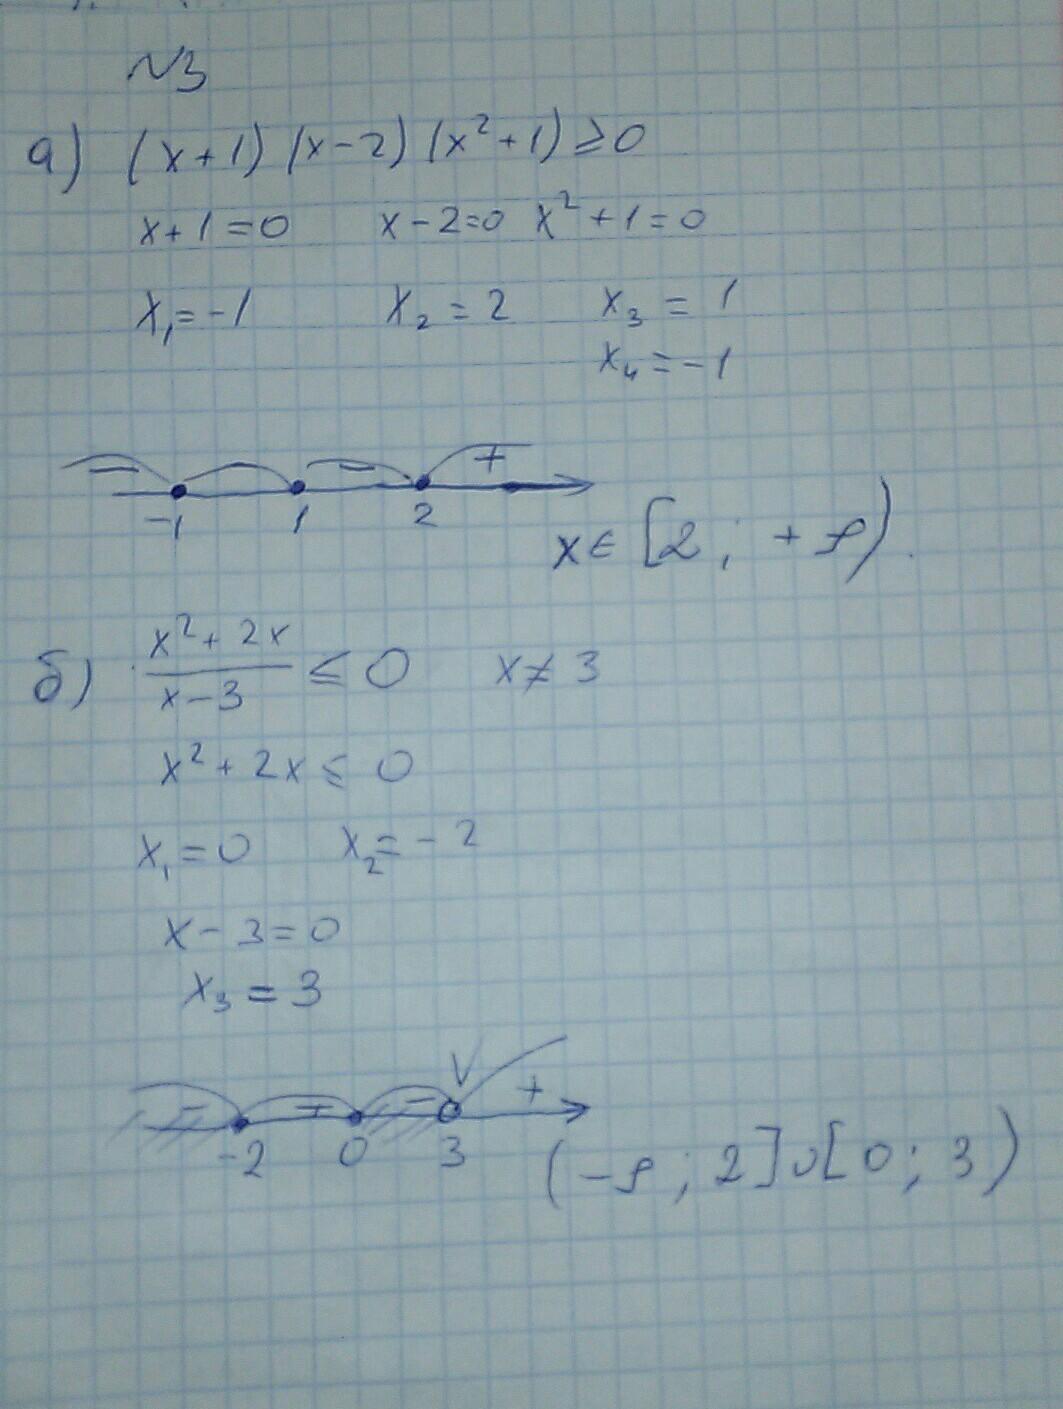 №3
а) (x+1)(x-2)(x²+1)≥0
x+1=0 x-2=0 x²+1=0
x₁=-1 x₂=2 x₃=1
x₄=-1
- - - +
-1 1 2
x∈[2; +∞).
б) (x²+2x)/(x-3) ≤ 0 x≠3
x²+2x≤0
x₁=0 x₂=-2
x-3=0
x₃=3
- + - +
-2 0 3
(-∞; 2]∪[0; 3)